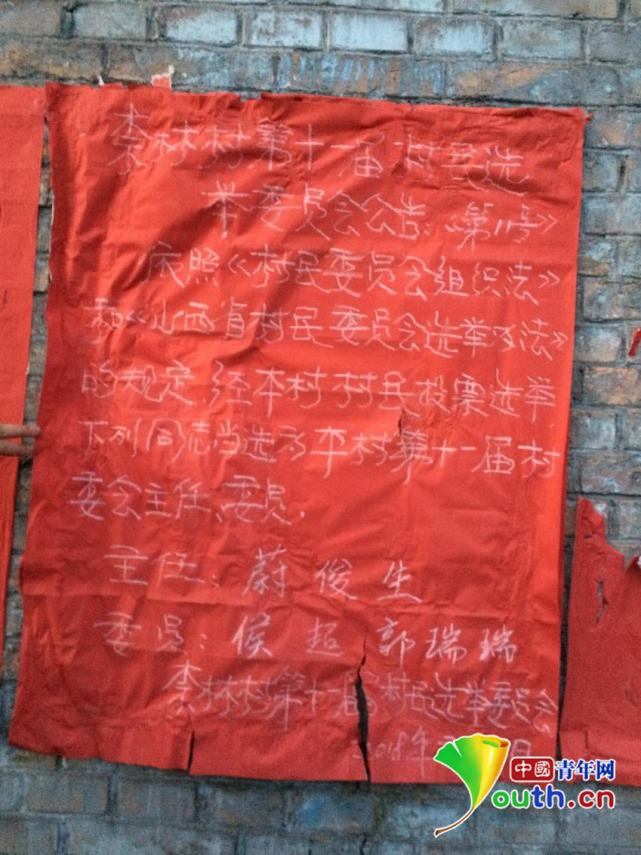 林村第十一届村民选
举委员会公告：《第11号》
依照《村民委员会组织法》
和《山西省村民委员会选举办法》
的规定，经本村村民投票选举
下列同志当选为本村第十一届村
委会主任、委员，
主任：蔚俊生
委员：侯超 郭瑞瑞
林村第十一届村民选举委员会
2018年 日
中國青年网
Youth.cn